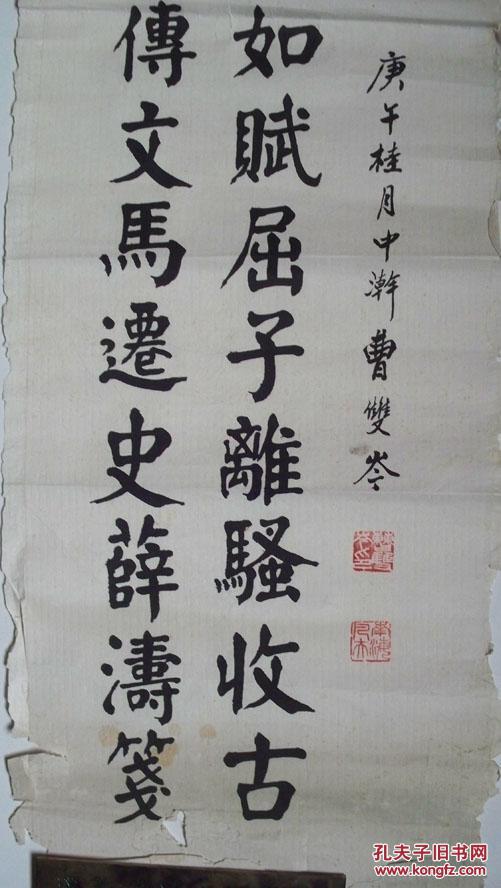 庚午桂月中澣曹雙岑
如賦屈子離騷收古
傳文馬遷史薛濤箋
孔夫子旧书网
www.kongfz.com